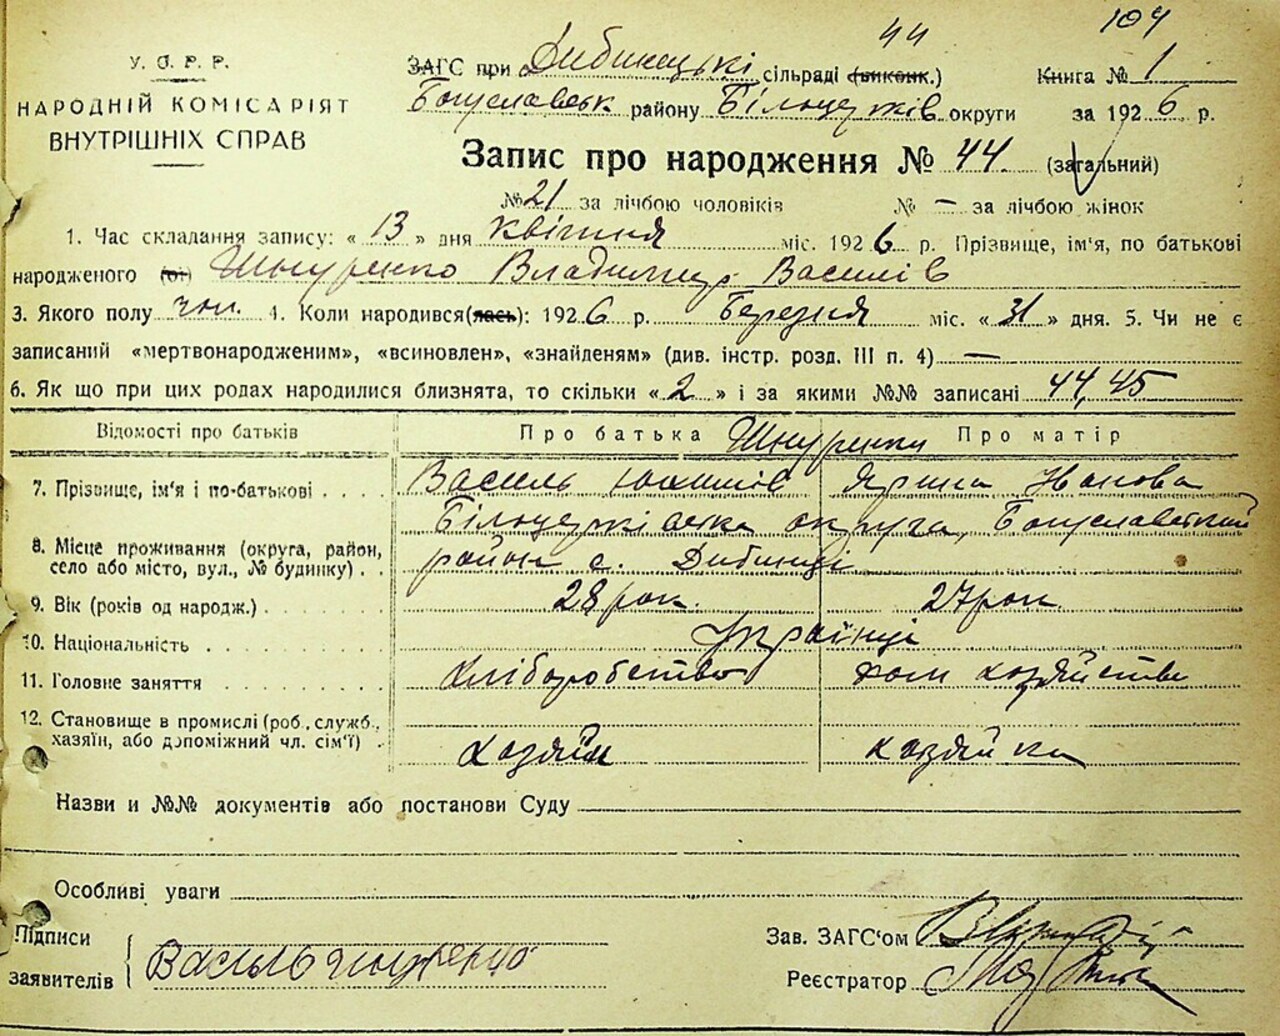 44
104
У. С. Р. Р.
НАРОДНІЙ КОМІСАРІЯТ
ВНУТРІШНІХ СПРАВ
ЗАГС при Дибинецькі сільраді (виконк.) Книга № 1
Богуславськ району Білоцерків округи за 1926 р.
Запис про народження № 44. (загальний)
№ 21 за лічбою чоловіків № — за лічбою жінок
1. Час складання запису: « 13 » дня квітня міс. 1926 р. Прізвище, ім'я, по батькові
народженого (ої) Шнуренко Владимир Василів
3. Якого полу чол. 4. Коли народився(лась): 1926 р. Березня міс. « 31 » дня. 5. Чи не є
записаний «мертвонародженим», «всиновлен», «знайденям» (див. інстр. розд. III п. 4) —
6. Як що при цих родах народилися близнята, то скільки « 2 » і за якими №№ записані 44, 45
Відомості про батьків Про батька Шнуренки Про матір
7. Прізвище, ім'я і по-батькові Василь Юхимів Ярина Иванова
Білоцерківська округа, Богуславський
8. Місце проживання (округа, район, село або місто, вул., № будинку) район с. Дибинці
9. Вік (років од народж.) 28 рок. 27 рок.
10. Національність Українці
11. Головне заняття хліборобство дом хозяйство
12. Становище в промислі (роб., служб., хазяїн, або допоміжний чл. сім'ї) хозяїн хозяйка
Назви и №№ документів або постанови Суду
Особливі уваги
Підписи заявителів Василь Шнуренко
Зав. ЗАГС'ом
Реєстратор